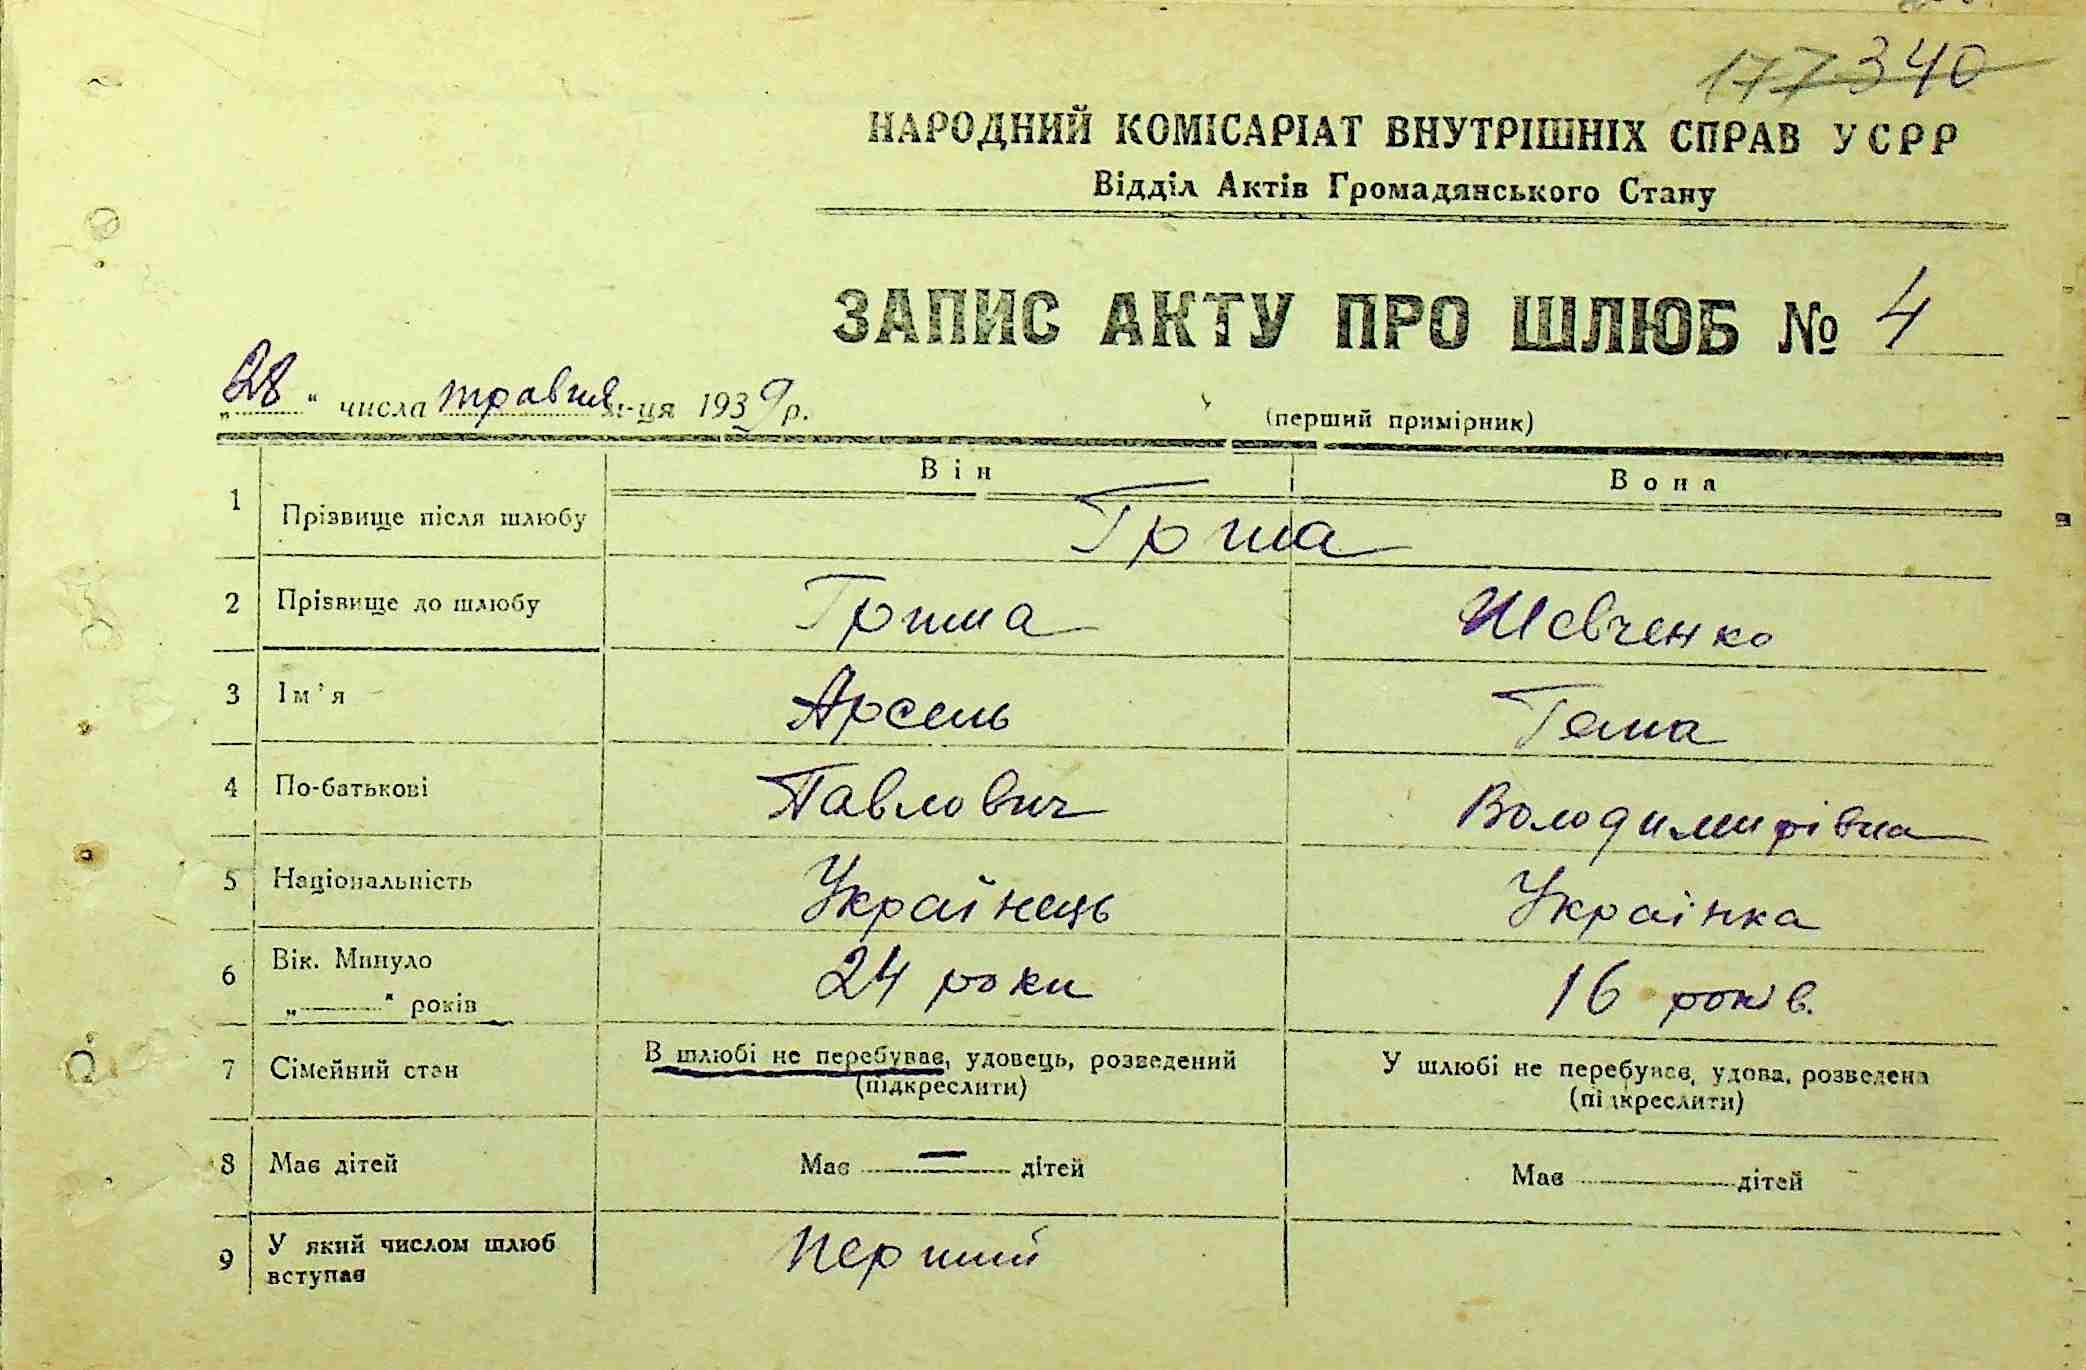 177 340
НАРОДНИЙ КОМІСАРІАТ ВНУТРІШНІХ СПРАВ УСРР
Відділ Актів Громадянського Стану
ЗАПИС АКТУ ПРО ШЛЮБ № 4
„28“ числа травня м-ця 1939 р.
(перший примірник)
Він Вона
1 Прізвище після шлюбу
2 Прізвище до шлюбу Шевченко
3 Ім'я Арсень
4 По-батькові Павлович Володимирівна
5 Національність Українець Українка
6 Вік. Минуло 24 роки 16 років.
„ “ років
7 Сімейний стан В шлюбі не перебуває, удовець, розведений У шлюбі не перебуває, удова, розведена
(підкреслити) (підкреслити)
8 Має дітей Має — дітей Має дітей
9 У який числом шлюб Перший
вступає